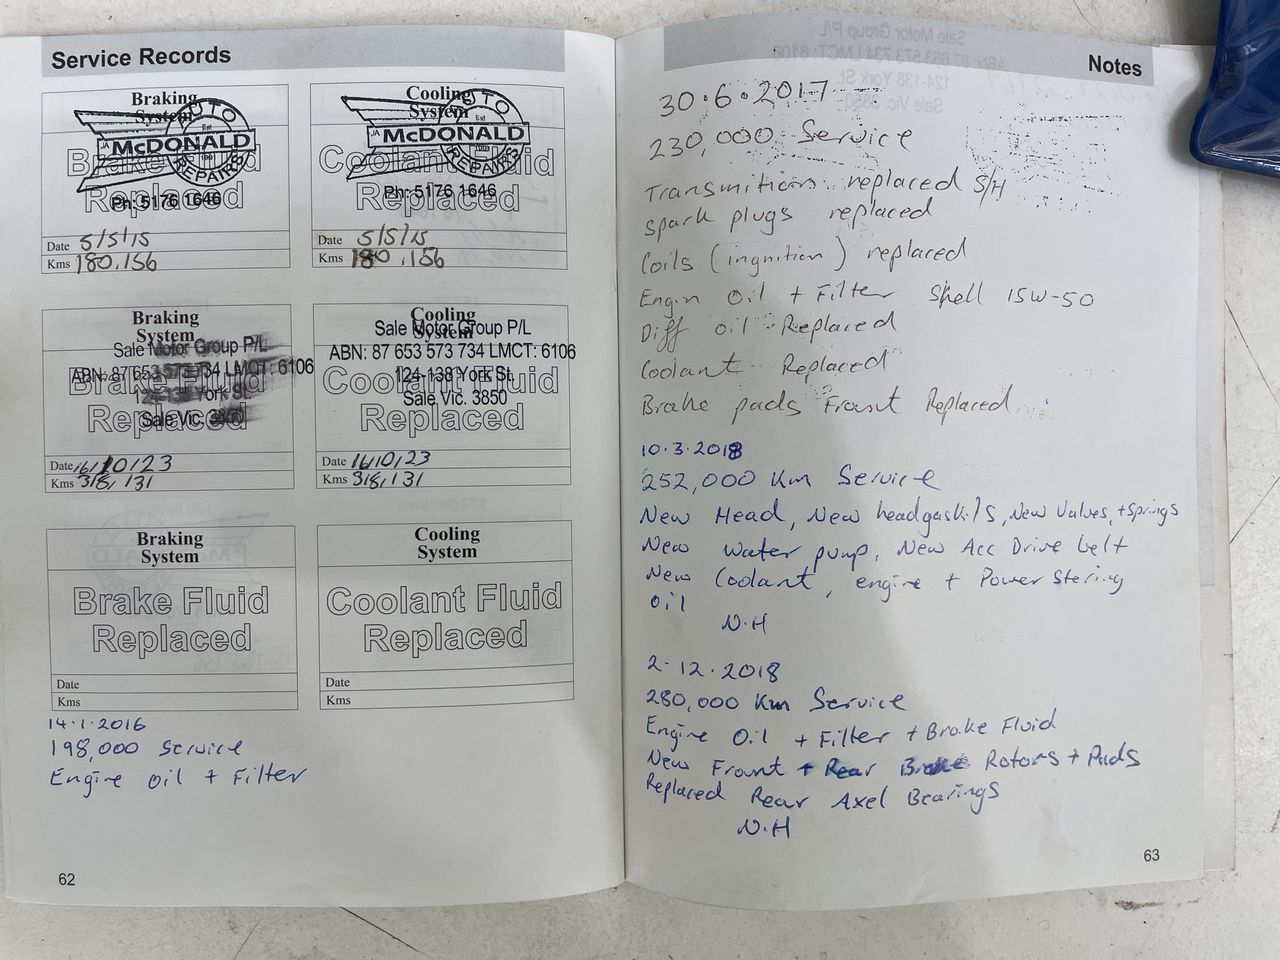 Service Records
Braking
System
Brake Fluid
Replaced
AUTO
Est
JA McDONALD
REPAIRS
Ph: 5176 1646
Date 5/5/15
Kms 180.156
Cooling
System
Coolant Fluid
Replaced
AUTO
Est
JA McDONALD
REPAIRS
Ph: 5176 1646
Date 5/5/15
Kms 180.156
Braking
System
Brake Fluid
Replaced
Sale Motor Group P/L
ABN: 87 653 573 734 LMCT: 6106
124-138 York St.
Sale Vic. 3850
Date 16/10/23
Kms 318,131
Cooling
System
Coolant Fluid
Replaced
Sale Motor Group P/L
ABN: 87 653 573 734 LMCT: 6106
124-138 York St.
Sale Vic. 3850
Date 16/10/23
Kms 318,131
Braking
System
Brake Fluid
Replaced
Date
Kms
Cooling
System
Coolant Fluid
Replaced
Date
Kms
14.1.2016
198,000 Service
Engine oil + Filter
62
Notes
30.6.2017
230,000 Service
Transmition replaced S/H
Spark plugs replaced
Coils (ingnition) replaced
Engin Oil + Filter Shell 15W-50
Diff oil Replaced
Coolant Replaced
Brake pads Front Replaced
10.3.2018
252,000 Km Service
New Head, New headgaskits, New Valves, + Springs
New Water pump, New Acc Drive belt
New Coolant, engine + Power Stering
oil
N.H
2-12.2018
280,000 Km Service
Engine Oil + Filter + Brake Fluid
New Front + Rear Brake Rotors + Pads
Replaced Rear Axel Bearings
N.H
63